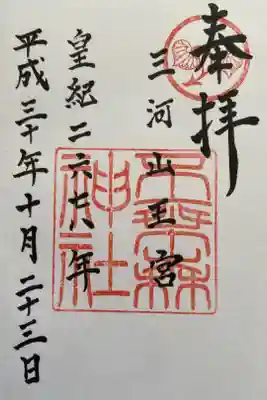 奉拝
三河山王宮
皇紀二六七八年
平成三十年十月二十三日
神社